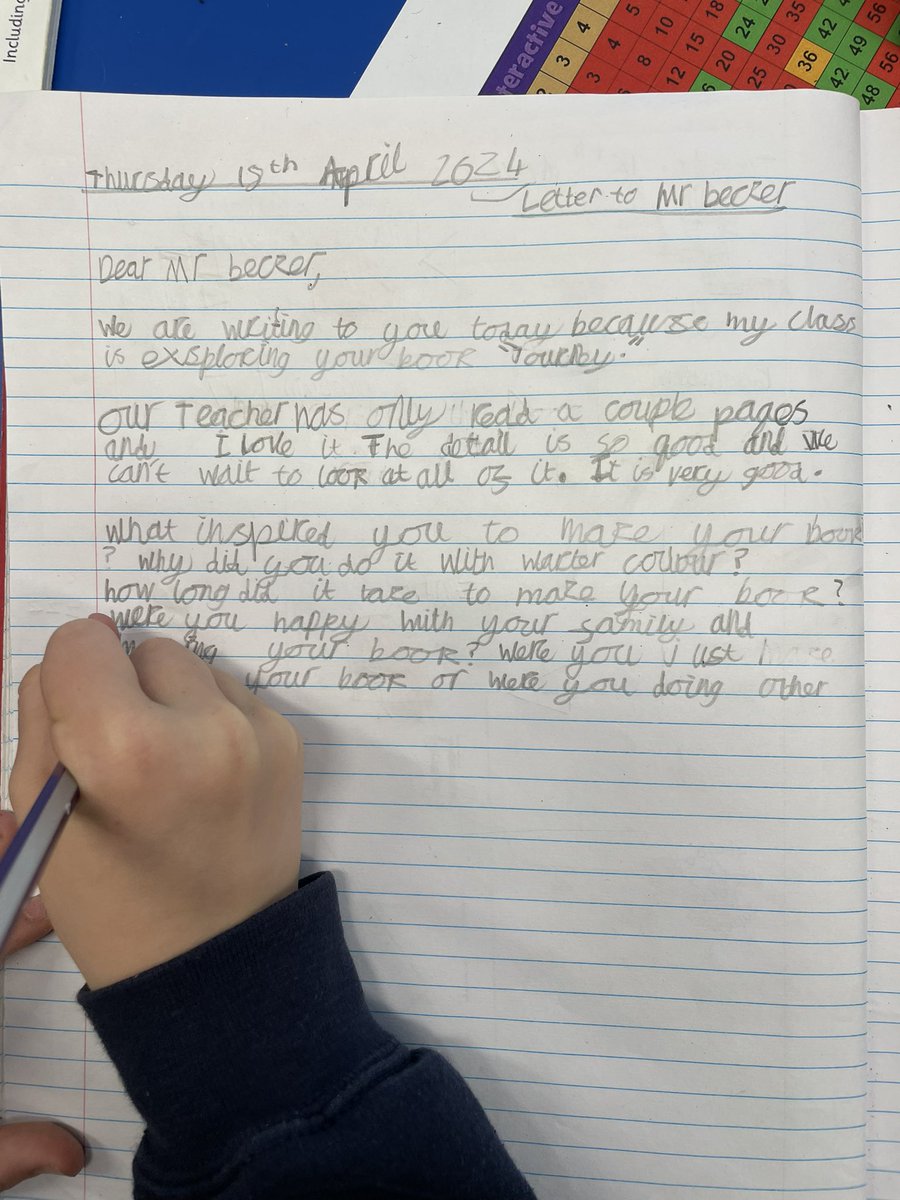 Including
teractive
3 4 5
4 10 18 35 42 56
3 8 15 24 30 36 49
12 25 42 56
48
Thursday 18th April 2024
Letter to Mr becker
Dear Mr becker,
We are writing to you today because my class
is exsploring your book "Journey."
Our Teacher has only read a couple pages
and I love it. The detail is so good and we
can't wait to look at all of it. It is very good.
What inspired you to make your book
? why did you do it with warter colour?
how long did it take to make your book?
were you happy with your family and
your book? were you just
your book or were you doing other